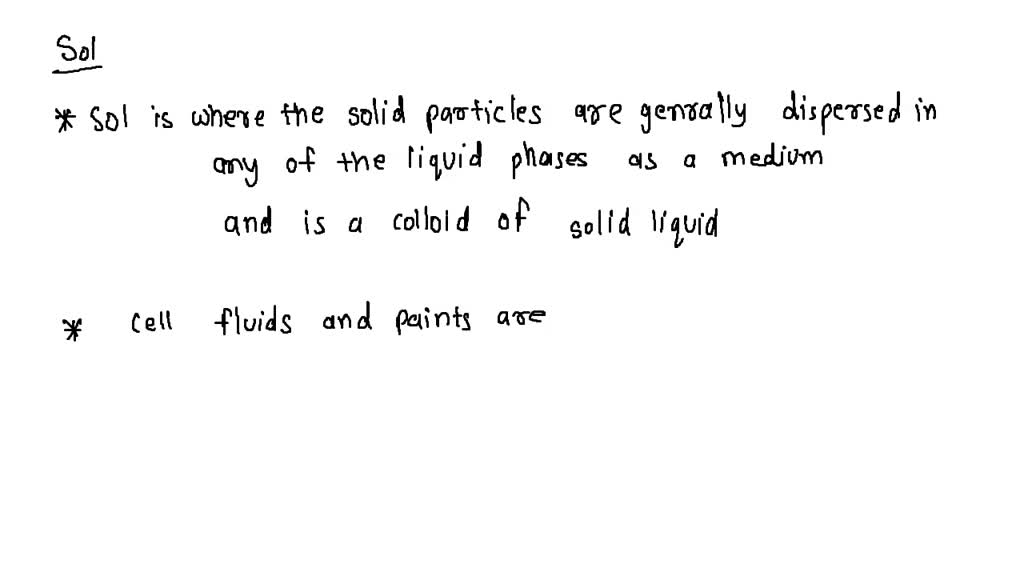 Sol
* Sol is where the solid particles are genrally dispersed in
any of the liquid phases as a medium
and is a colloid of solid liquid
* cell fluids and paints are